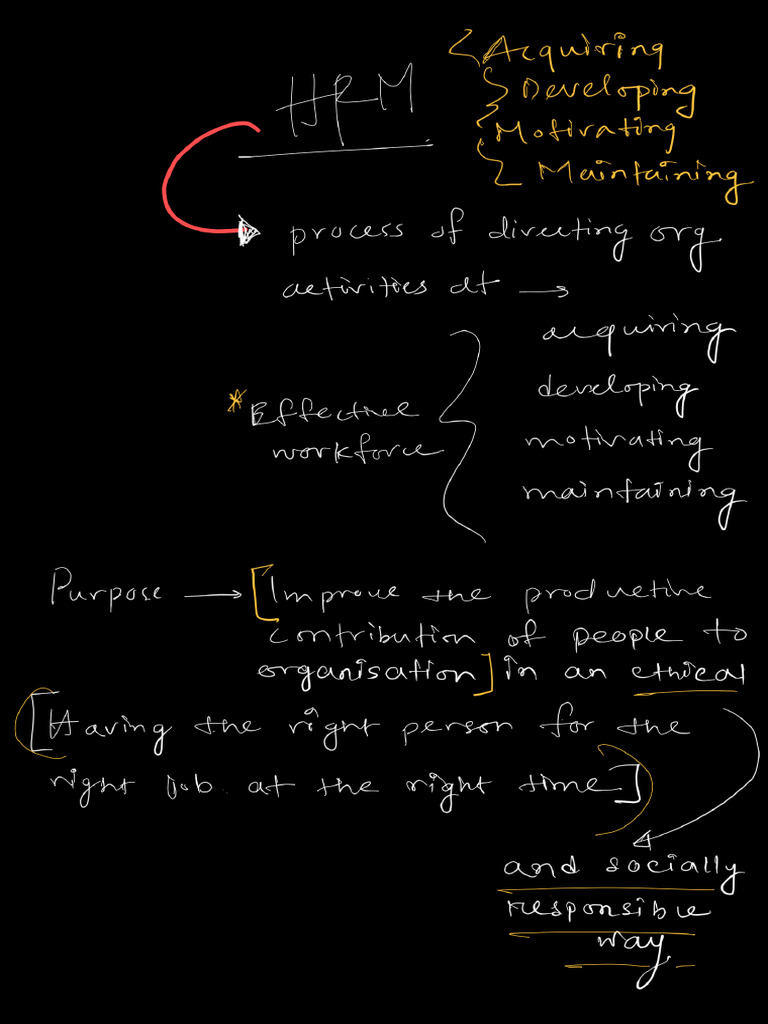 HRM
Acquiring
Developing
Motivating
Maintaining
process of directing org
activities at →
acquiring
developing
motivating
maintaining
* Effective
workforce
Purpose → [Improve the productive
contribution of people to
organisation] in an ethical
[Having the right person for the
right job at the right time]
and socially
responsible
way.